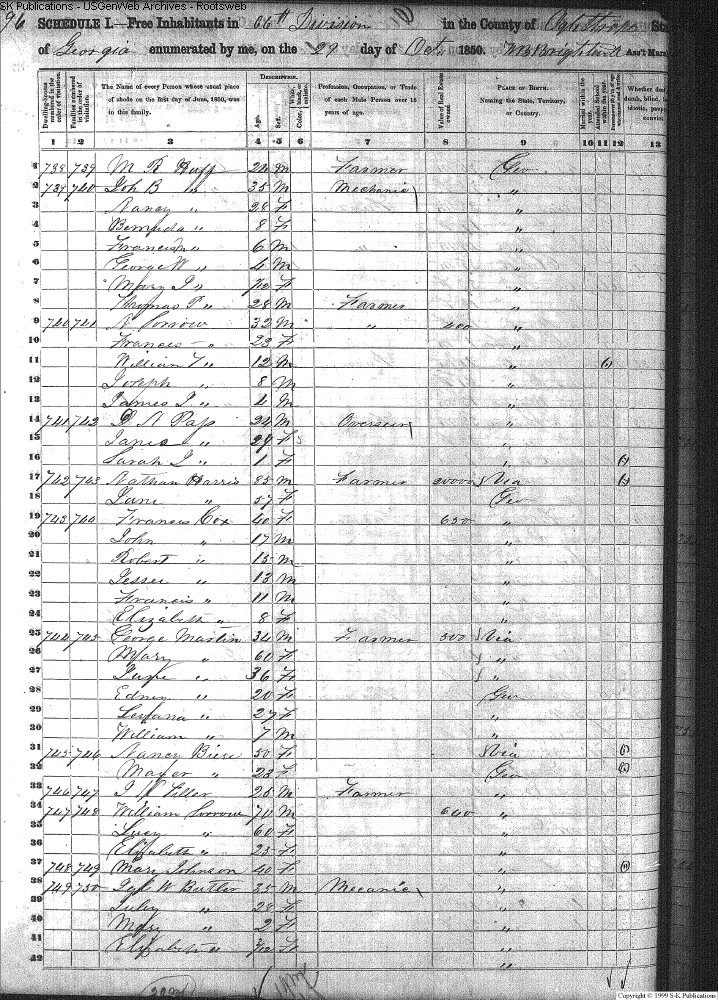 SK Publications - USGenWeb Archives - Rootsweb
96 SCHEDULE I.—Free Inhabitants in 66th Division in the County of Oglethorpe State
of Georgia enumerated by me, on the 29 day of Oct 1850. Ass't Mars
Dwelling-houses numbered in the order of visitation.
Families numbered in the order of visitation.
The Name of every Person whose usual place of abode on the first day of June, 1850, was in this family.
DESCRIPTION.
Age.
Sex.
White, black, or mulatto.
Color,
Profession, Occupation, or Trade of each Male Person over 15 years of age.
Value of Real Estate owned.
PLACE OF BIRTH. Naming the State, Territory, or Country.
Married within the year.
Attended School within the year.
Whether deaf dumb, blind, idiotic, pauper convict.
1 2 3 4 5 6 7 8 9 10 11 12 13
1 738 739 M R Huff M Farmer Geo
2 739 740 Joh B " 35 M Mechanic "
3 Nancy " 28 F "
4 " 8 F "
5 Francis " 6 M " "
6 George W " 4 M "
7 Mary J " F "
8 Thomas P " 28 M Farmer "
9 740 741 Sorrow 32 M " "
10 Frances " 23 F "
11 William T " 12 M " (1)
12 Joseph " 8 M "
13 James J " 4 M "
14 741 742 24 M Overseer "
15 " F "
16 Sarah J " 1 F "
17 742 743 Nathan Harris 85 M Farmer Via
18 Jane " 57 F Geo
19 743 744 Frances Cox 40 F 650 "
20 John " 17 M "
21 Robert " 15 M "
22 Jesse " 13 M "
23 Francis " 11 M "
24 Elizabeth " 8 F "
25 744 745 George Martin 34 M Farmer 500 Via
26 Mary " 60 F "
27 " 36 F "
28 Edney " 20 F Geo
29 " 27 F "
30 William " 7 M "
31 745 746 Nancy 50 F Via
32 " 23 F Geo
33 746 747 M Farmer "
34 747 748 William Sorrow 70 M 600 "
35 Lucy " 60 F "
36 Elizabeth " 25 F "
37 748 749 Mary Johnson 40 F "
38 749 750 W Butler 35 M Mecanic "
39 " 28 F "
40 Mary " 2 F "
41 Elizabeth " F "
42 "
Copyright © 1999 S-K Publications